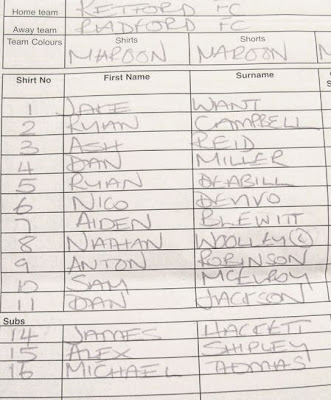 Home team KETFORD FC
Away team RADFORD FC
Team Colours Shirts MAROON Shorts MAROON
Shirt No First Name Surname
1 JAKE WANT
2 RYAN CAMPBELL
3 ASH REID
4 DAN MILLER
5 RYAN DEABILL
6 NICO DENVO
7 AIDEN BLEWITT
8 NATHAN WOOLLEY (C)
9 ANTON ROBINSON
10 SAM McELROY
11 DAN JACKSON
Subs
14 JAMES HACKETT
15 ALEX SHIPLEY
16 MICHAEL ADMAS